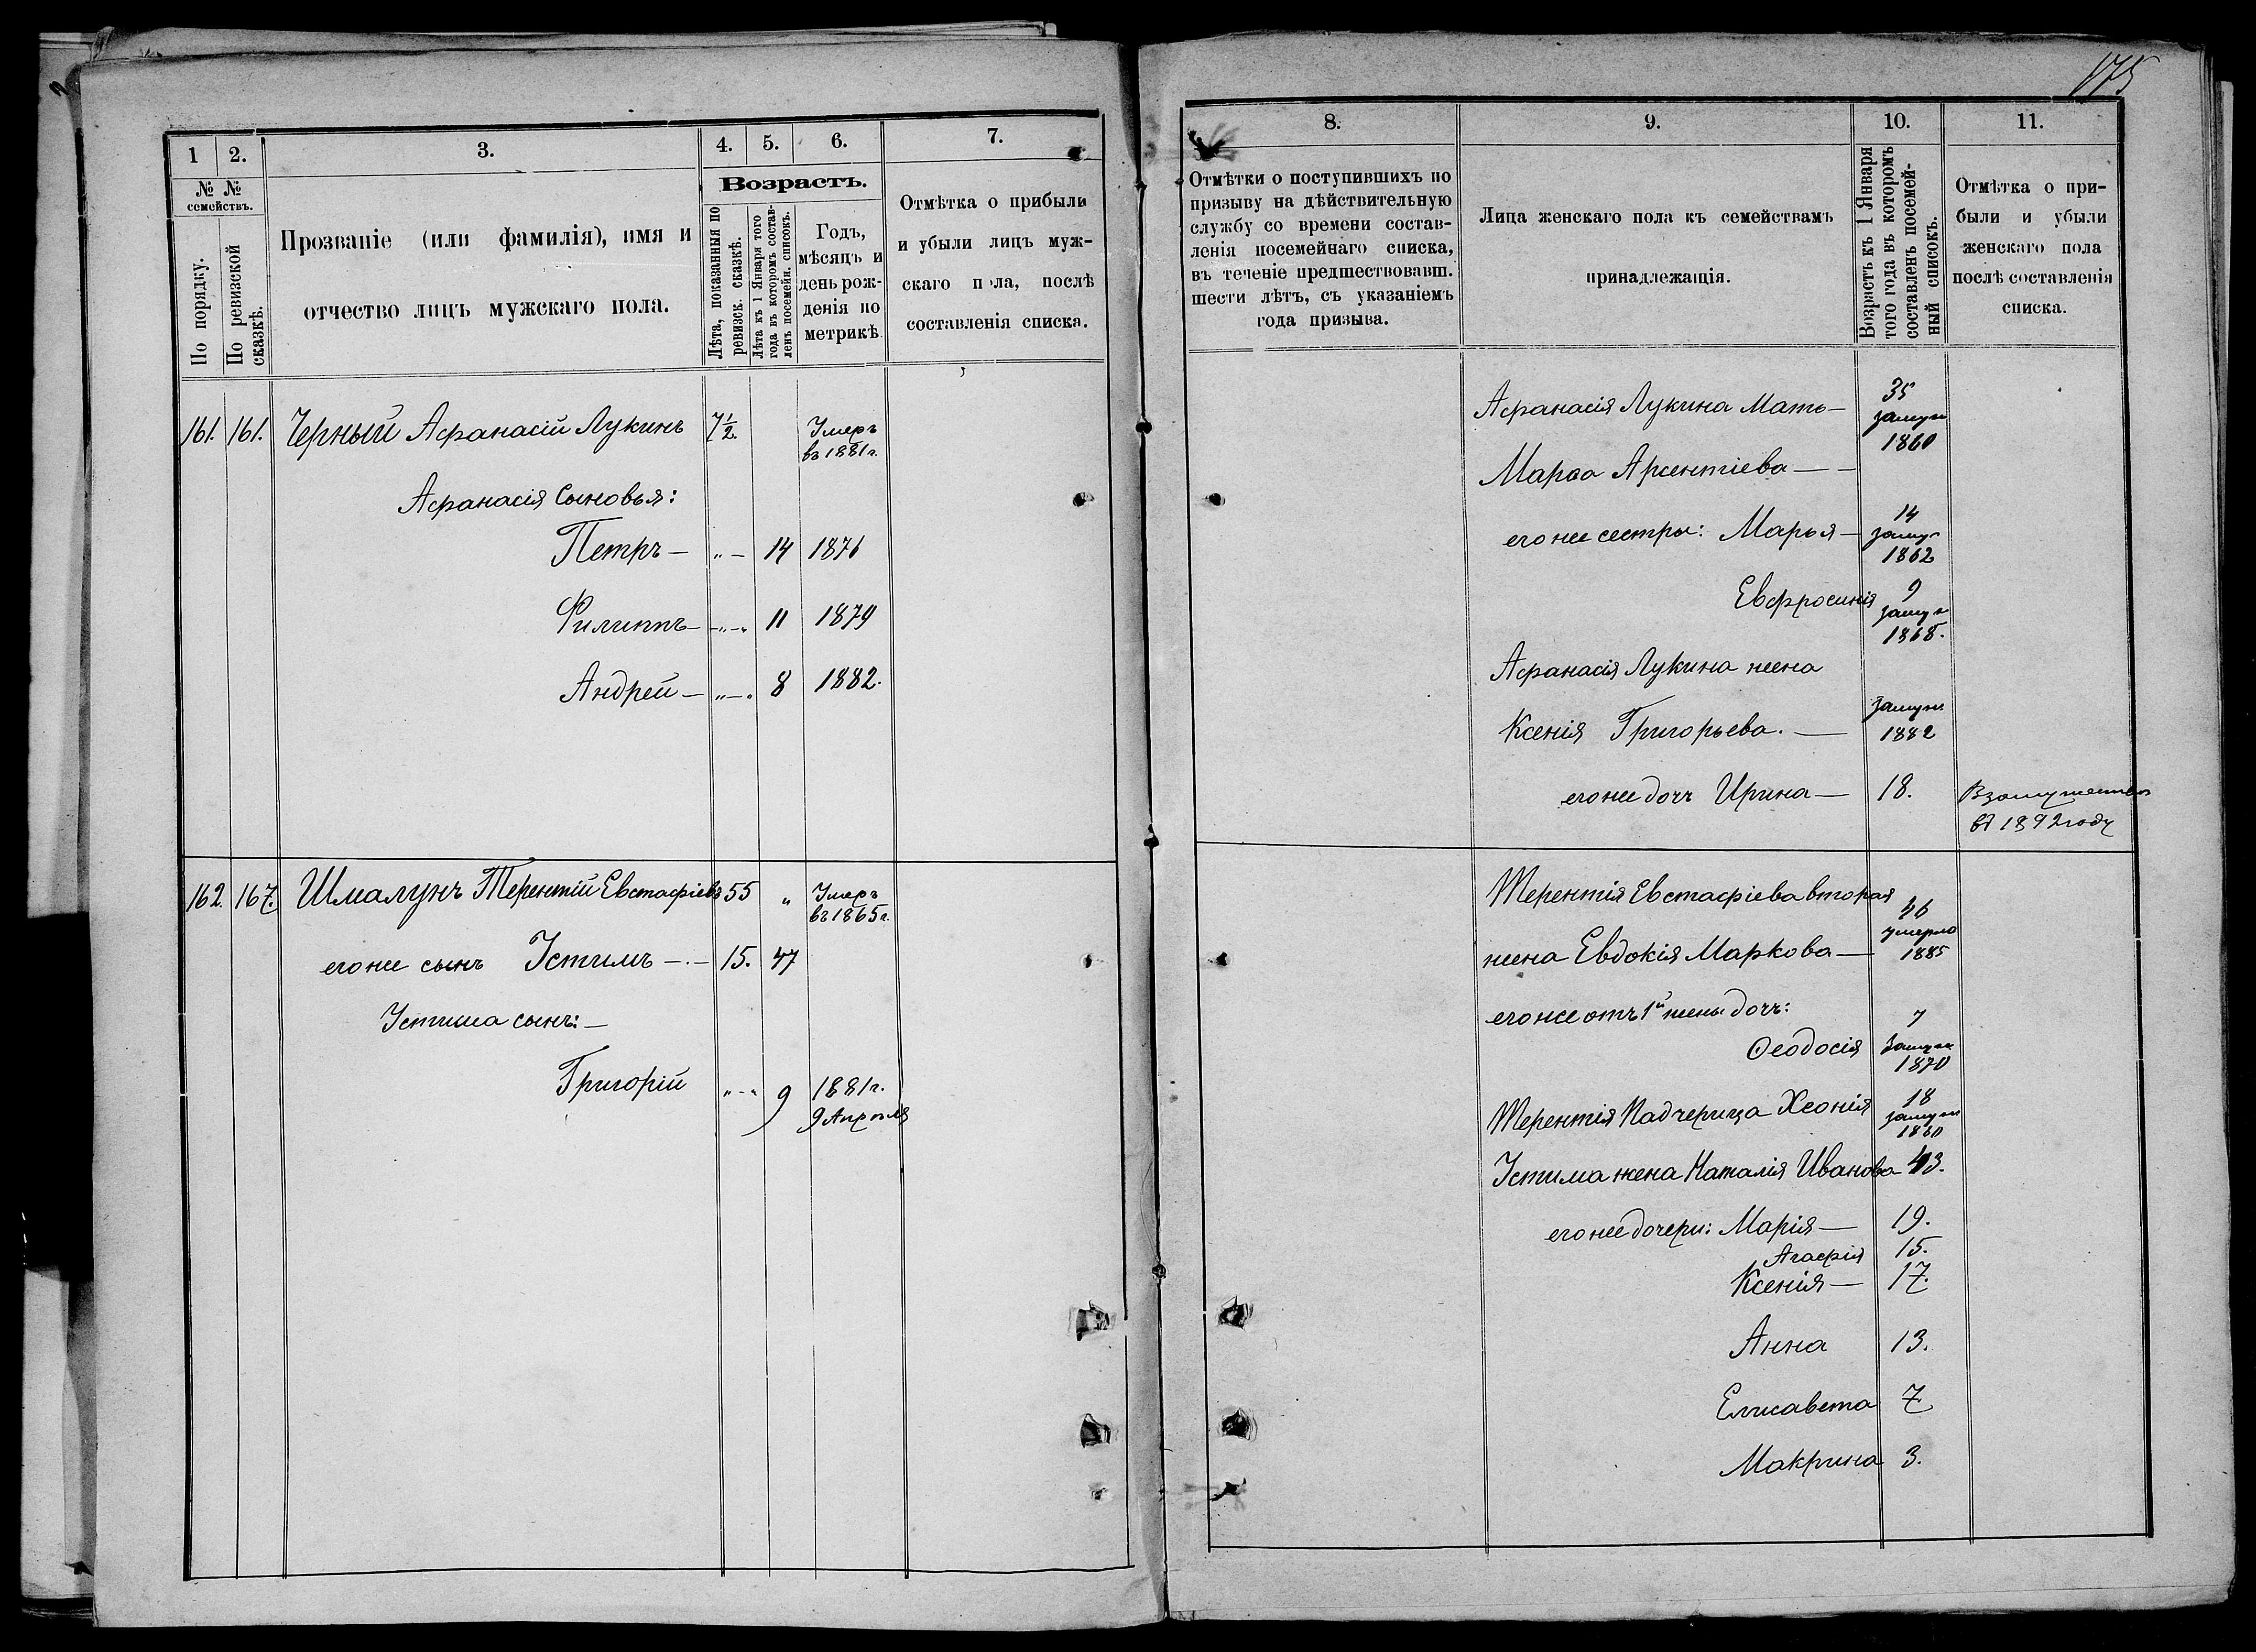 1 2. 3. 4. 5. 6. 7.
№ № семействъ.
По порядку.
По ревизской сказкѣ.
Прозваніе (или фамилія), имя и
отчество лицъ мужскаго пола.
Возрастъ.
Лѣта, показанныя по
ревизск. сказкѣ.
Лѣта къ 1 Января того
года въ которомъ состав-
ленъ посемейн. списокъ.
Годъ,
мѣсяцъ и
день рож-
денія по
метрикѣ
Отмѣтка о прибыли
и убыли лицъ муж-
скаго пола, послѣ
составленія списка.
161. 161. Черный Афанасій Лукинъ 7½. Умеръ
въ 1881 г.
Афанасія Сыновья:
Петръ — „ — 14 1876
Филиппъ — „ — „ 11 1879
Андрей — „ — „ 8 1882.
162. 167. Шмалунъ Терентій Евстафіевъ 55 „ Умеръ
въ 1865 г.
его же сынъ Устимъ — . — 15. 47
Устима сынъ: —
Григорій „ - „ 9 1881 г.
9 Апрѣля
175
8. 9. 10. 11.
Отмѣтки о поступившихъ по
призыву на дѣйствительную
службу со времени состав-
ленія посемейнаго списка,
въ теченіе предшествовавш.
шести лѣтъ, съ указаніемъ
года призыва.
Лица женскаго пола къ семействамъ
принадлежащія.
Возрастъ къ 1 Января
того года въ которомъ
составленъ посемей-
ный списокъ.
Отмѣтка о при-
были и убыли
женскаго пола
послѣ составленія
списка.
Афанасія Лукина Мать — 35
замуж
1860
Марѳа Арсентіева — —
его же сестры: Марья — 14
замуж
1862
Евфросинія 9
замуж
1868.
Афанасія Лукина жена
Ксенія Григорьева. — замуж
1882
его же дочь Ирина — 18. В замужество
въ 1892 году
Терентія Евстафіева вторая
жена Евдокія Маркова — 46
умерла
1885
его же отъ 1й жены дочь: 7
Ѳеодосія замуж
1870
Терентія Падчерица Хеонія 18
замуж
1860
Устима жена Наталія Иванова 43.
его же дочери: Марія — 19.
Агафія 15.
Ксенія — 17.
Анна 13.
Елисавета 7
Макрина 3.